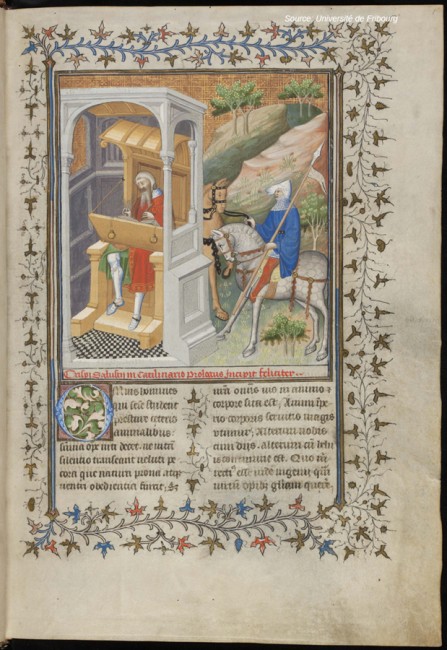 Source: Université de Fribourg
Crispi Salustii in Catilinario Prologus Incipit feliciter..
Omnis homines
qui sese student
prestare ceteris
animalibus:
summa ope niti decet. ne vitam
silencio transeant veluti pe
cora que natura prona atqꝫ
ventri obediencia finxit. Sꝫ
nr̄a om̄is vis in animo ⁊
corpore sita est. Animi īpe
rio corporis servitio magis
utimur. Alterum nobis
cum diis. alterum cū belu
is commune est. Quo
rectiꝰ esse videtur ingenii q̄m
virium opibꝰ gl̄iam querere